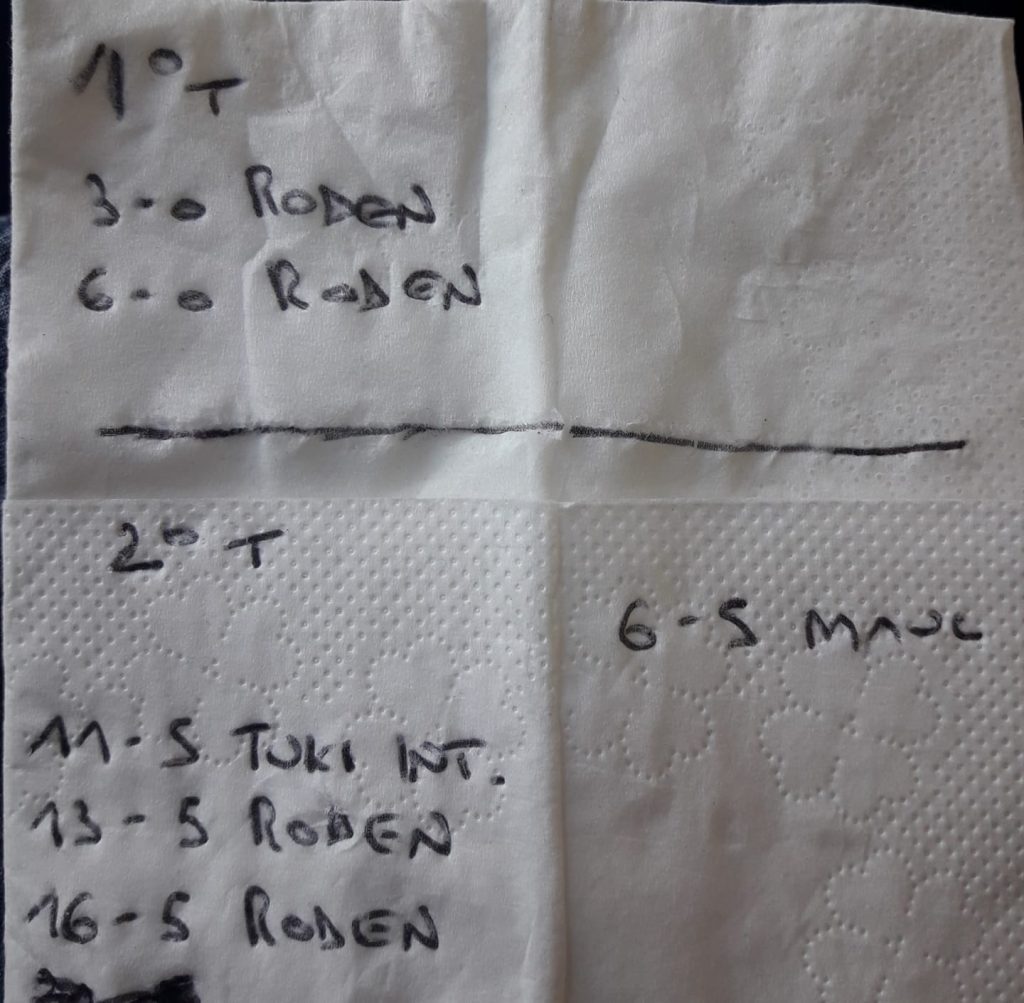 1º T
3-0 RODEN
6-0 RODEN
2º T
6-5 MAUL
11-5 TUKI INT.
13-5 RODEN
16-5 RODEN